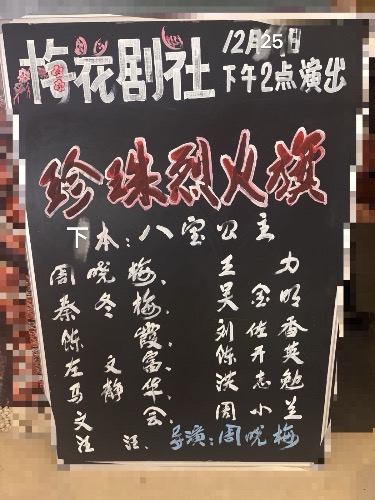 梅花剧社
12月25日
下午2点演出
珍珠烈火旗
下本:八宝公主
周晓梅、 王 力
秦冬梅、 吴金明
陈 霞、 刘佐香
左文富、 陈开英
马静华、 洪志勉
文 会、 周小兰
汪 汪、
导演:周晓梅